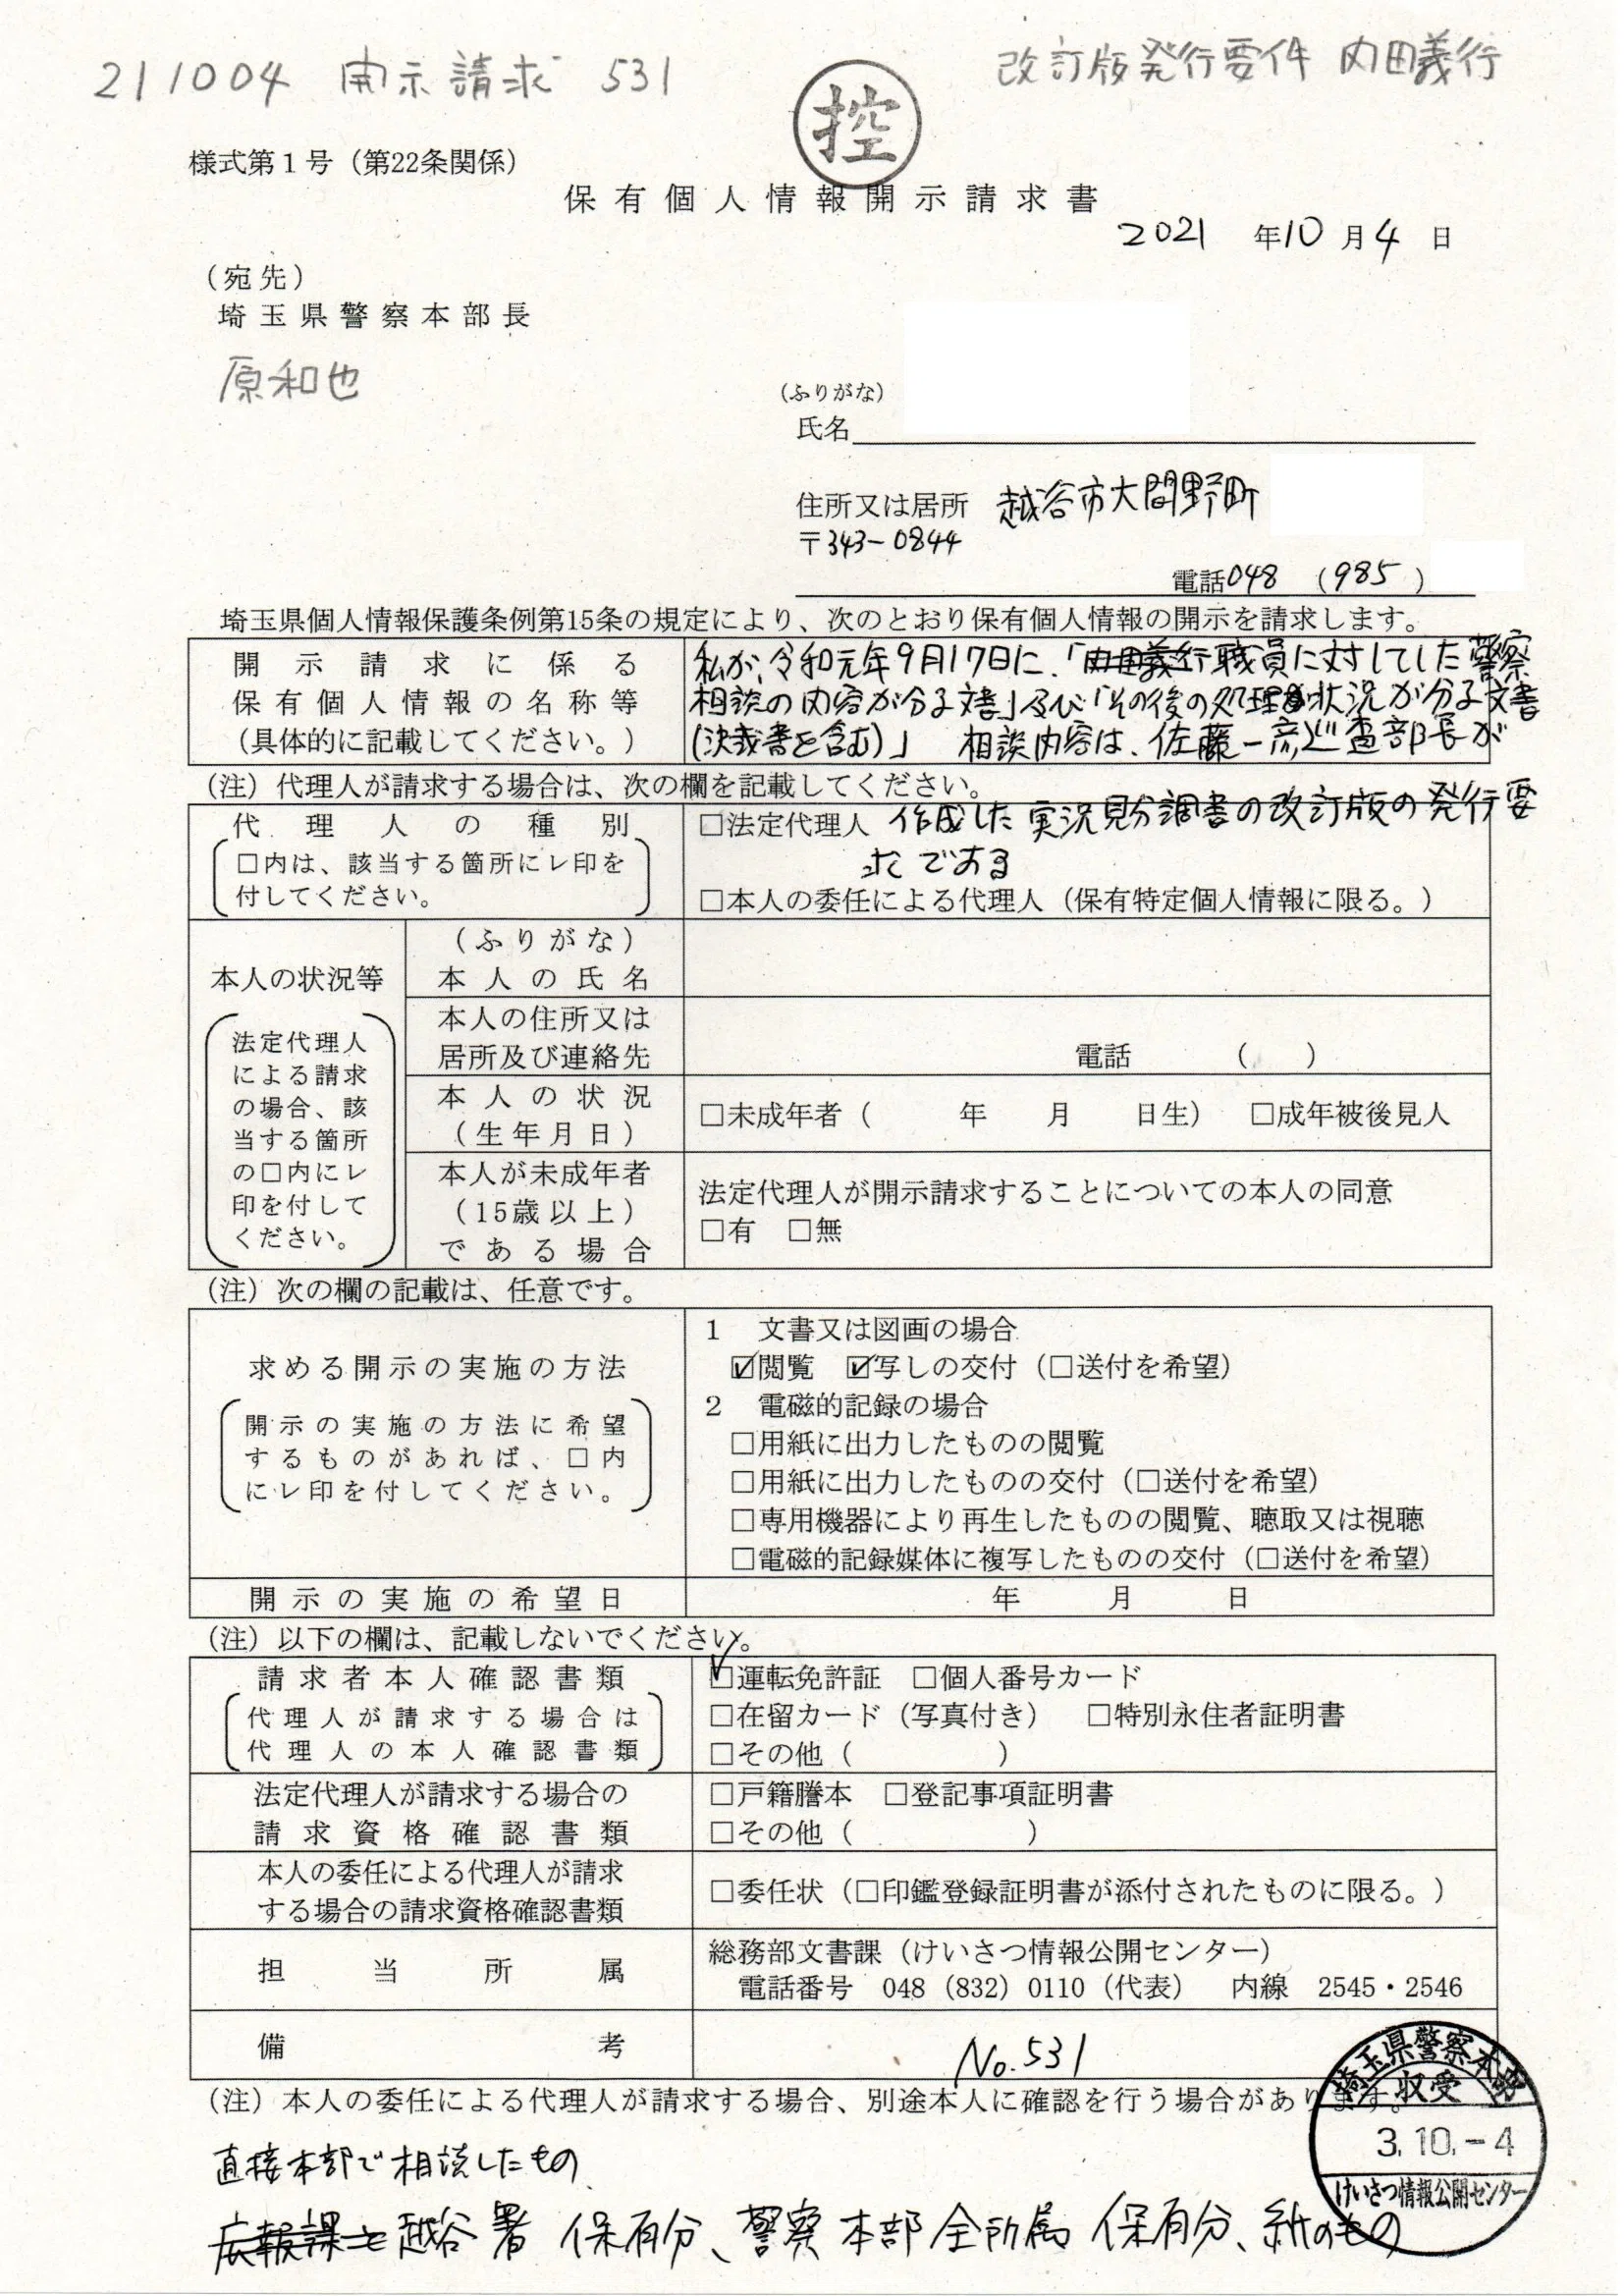 211004 開示請求 531
改訂版発行要件 内田義行
控
様式第1号（第22条関係）
保有個人情報開示請求書
2021 年10月4日
（宛先）
埼玉県警察本部長
原和也
（ふりがな）
氏名
住所又は居所 越谷市大間野町
〒343-0844
電話048 （985）
埼玉県個人情報保護条例第15条の規定により、次のとおり保有個人情報の開示を請求します。
開示請求に係る
保有個人情報の名称等
（具体的に記載してください。）
私が、令和元年9月17日に、「内田義行職員に対してした警察
相談の内容が分る文書」及び「その後の処理状況が分る文書
（決裁書を含む）」 相談内容は、佐藤一彦巡査部長が
（注）代理人が請求する場合は、次の欄を記載してください。
代理人の種別
□内は、該当する箇所にレ印を
付してください。
□法定代理人 作成した実況見分調書の改訂版の発行要
求である
□本人の委任による代理人（保有特定個人情報に限る。）
本人の状況等
法定代理人
による請求
の場合、該
当する箇所
の□内にレ
印を付して
ください。
（ふりがな）
本人の氏名
本人の住所又は
居所及び連絡先
電話 （ ）
本人の状況
（生年月日）
□未成年者（ 年 月 日生） □成年被後見人
本人が未成年者
（15歳以上）
である場合
法定代理人が開示請求することについての本人の同意
□有 □無
（注）次の欄の記載は、任意です。
求める開示の実施の方法
開示の実施の方法に希望
するものがあれば、□内
にレ印を付してください。
1 文書又は図画の場合
☑閲覧 ☑写しの交付（□送付を希望）
2 電磁的記録の場合
□用紙に出力したものの閲覧
□用紙に出力したものの交付（□送付を希望）
□専用機器により再生したものの閲覧、聴取又は視聴
□電磁的記録媒体に複写したものの交付（□送付を希望）
開示の実施の希望日
年 月 日
（注）以下の欄は、記載しないでください。
請求者本人確認書類
代理人が請求する場合は
代理人の本人確認書類
☑運転免許証 □個人番号カード
□在留カード（写真付き） □特別永住者証明書
□その他（ ）
法定代理人が請求する場合の
請求資格確認書類
□戸籍謄本 □登記事項証明書
□その他（ ）
本人の委任による代理人が請求
する場合の請求資格確認書類
□委任状（□印鑑登録証明書が添付されたものに限る。）
担当所属
総務部文書課（けいさつ情報公開センター）
電話番号 048（832）0110（代表） 内線 2545・2546
備考
No.531
（注）本人の委任による代理人が請求する場合、別途本人に確認を行う場合があります。
埼玉県警察本部
収受
3.10.-4
けいさつ情報公開センター
直接本部で相談したもの
広報課と越谷署 保有分、警察本部全所属 保有分、紙のもの